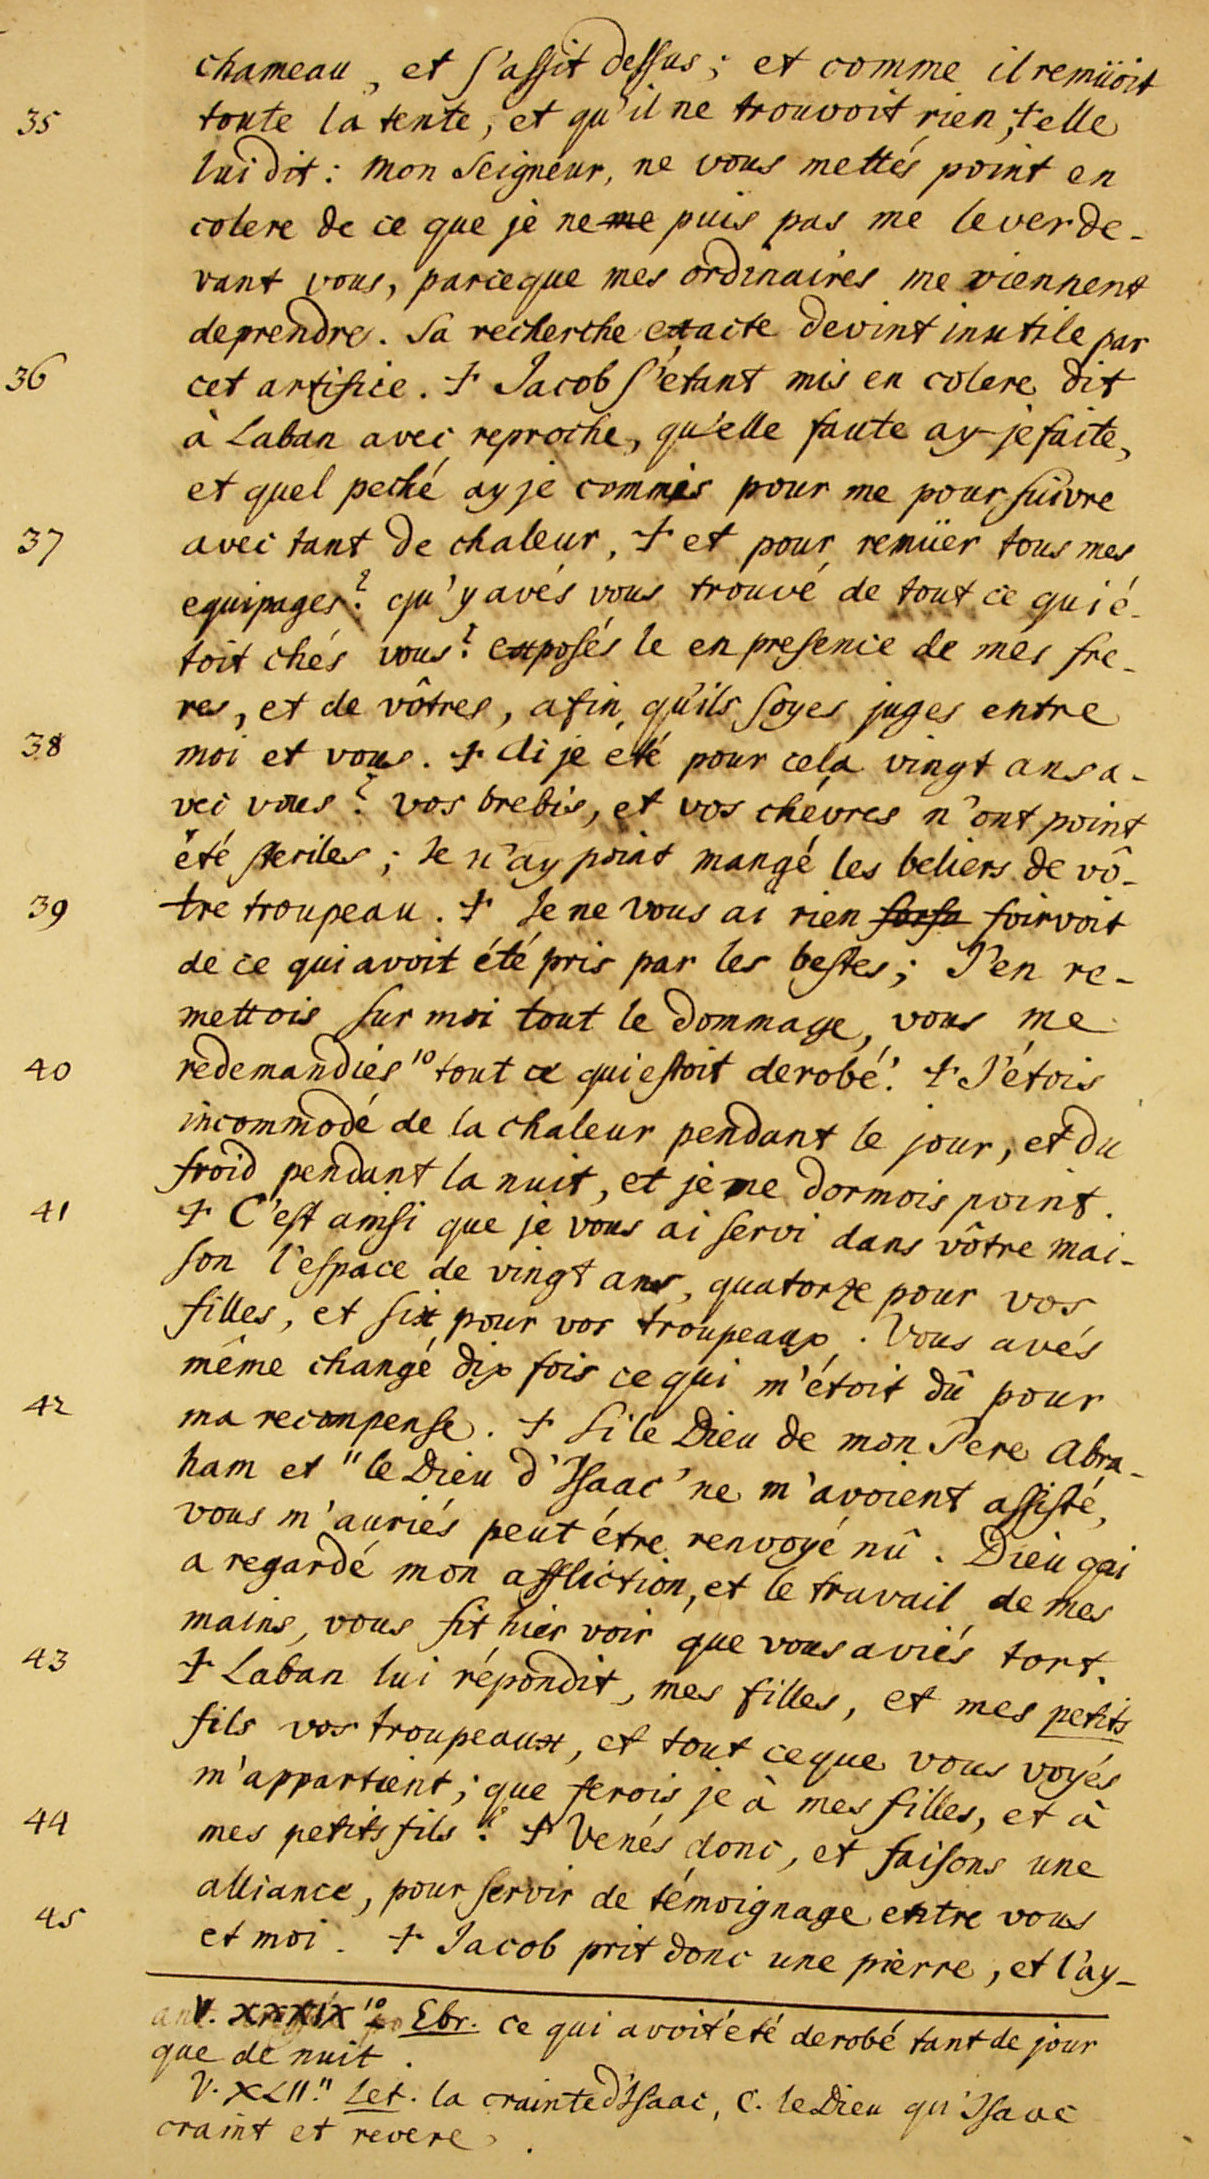 chameau, et s'assit dessus; et comme il remüoit
35 toute la tente, et qu'il ne trouvoit rien, + elle
lui dit: Mon Seigneur, ne vous mettés point en
colere de ce que je ne me puis pas me lever de-
vant vous, parceque mes ordinaires me viennent
de prendre. Sa recherche exacte devint inutile par
36 cet artifice. + Jacob s'étant mis en colere dit
à Laban avec reproche, qu'elle faute ay-je faite,
et quel peché ay je commis pour me poursuivre
37 avec tant de chaleur, + et pour remüer tous mes
equipages? qu'y avés vous trouvé de tout ce qui é-
toit chés vous? exposés le en presence de mes fre-
res, et de vôtres, afin qu'ils soyes juges entre
38 moi et vous. + Ai je été pour cela vingt ans a-
vec vous? vos brebis, et vos chévres n'ont point
été steriles; Je n'ay point mangé les beliers de vô-
39 tre troupeau. + Je ne vous ai rien foirvoit
de ce qui avoit été pris par les bestes; J'en re-
mettois sur moi tout le dommage, vous me
40 redemandiés 10 tout ce qui estoit derobé'. + J'étois
incommodé de la chaleur pendant le jour, et du
froid pendant la nuit, et je ne dormois point.
41 + C'est ainsi que je vous ai servi dans vôtre mai-
son l'espace de vingt ans, quatorze pour vos
filles, et six pour vos troupeaux. Vous avés
même changé dix fois ce qui m'étoit dû pour
42 ma recompense. + Si le Dieu de mon Pere Abra-
ham et 11 le Dieu d'Isaac' ne m'avoient assisté,
vous m'auriés peut étre renvoyé nû. Dieu qui
a regardé mon affliction, et le travail de mes
mains, vous fit hier voir que vous aviés tort.
43 + Laban lui répondit, mes filles, et mes petits
fils vos troupeaux, et tout ce que vous voyés
m'appartient; que ferois je à mes filles, et à
44 mes petits fils? + Venés donc, et faisons une
alliance, pour servir de témoignage entre vous
45 et moi. + Jacob prit donc une pierre, et l'ay-
V. XXXIX 10 Ebr. ce qui avoit été derobé tant de jour
que de nuit.
V. XLII. 11 Let. la crainte d'Isaac, C. le Dieu qu'Isaac
craint et revere.